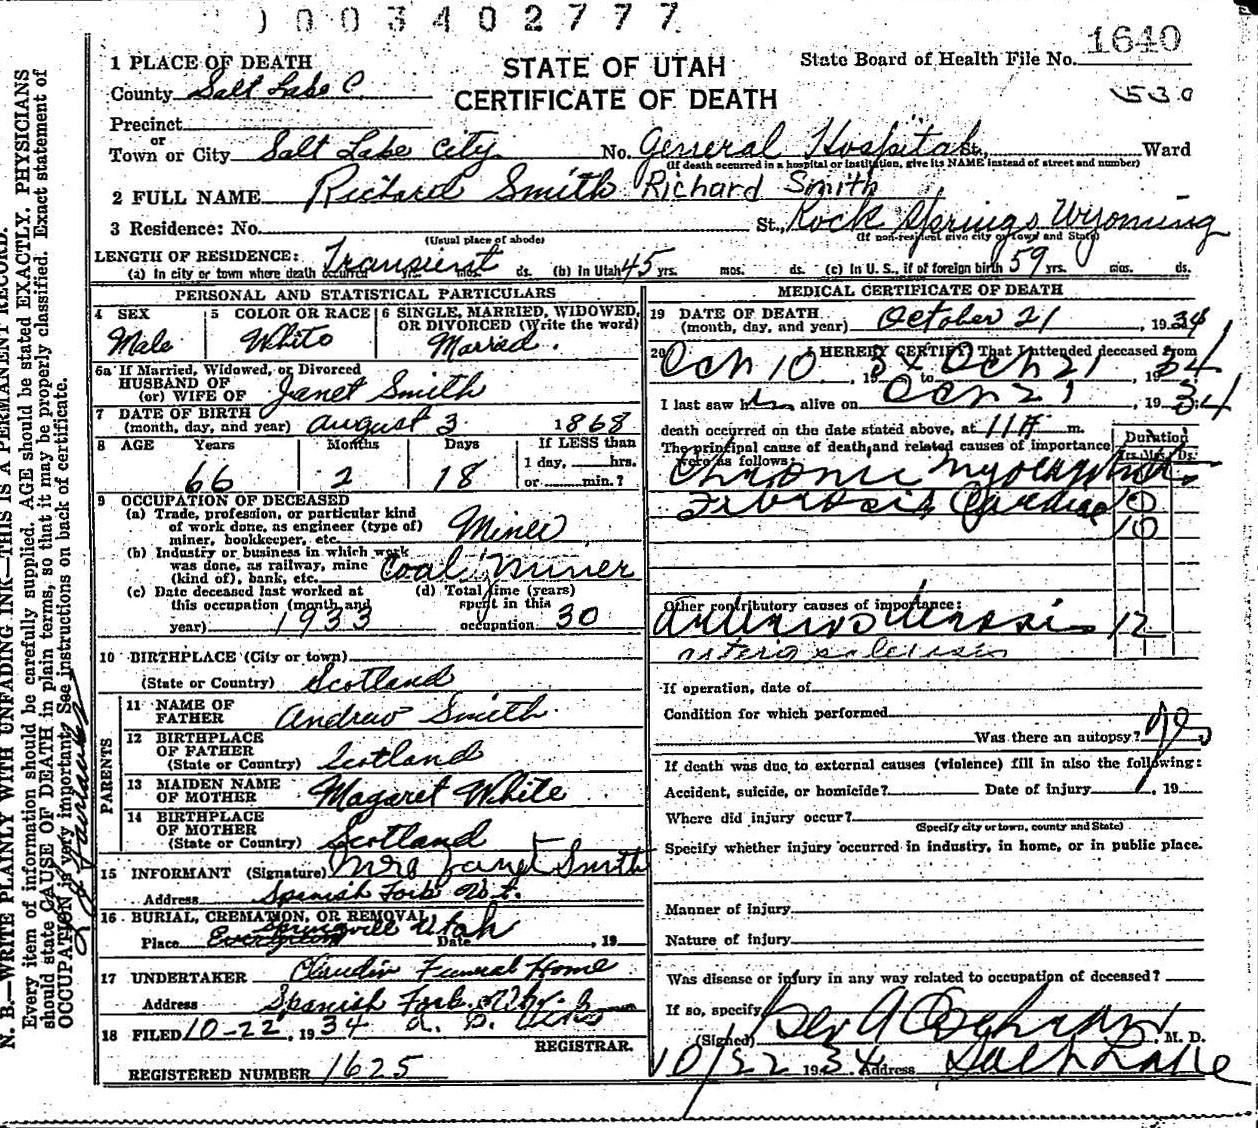 0003402777
1640
State Board of Health File No.
530
STATE OF UTAH
CERTIFICATE OF DEATH
1 PLACE OF DEATH
County Salt Lake C.
Precinct
or
Town or City Salt Lake City. No. General Hospital St., Ward
(If death occurred in a hospital or institution, give its NAME instead of street and number)
2 FULL NAME Richard Smith Richard Smith
3 Residence: No. St., Rock Springs Wyoming
(Usual place of abode) (If non-resident give city or town and State)
LENGTH OF RESIDENCE:
(a) In city or town where death occurred Transient yrs. mos. ds. (b) In Utah 45 yrs. mos. ds. (c) In U. S., if of foreign birth 59 yrs. mos. ds.
PERSONAL AND STATISTICAL PARTICULARS
4 SEX Male
5 COLOR OR RACE White
6 SINGLE, MARRIED, WIDOWED, OR DIVORCED (Write the word) Married.
6a If Married, Widowed, or Divorced
HUSBAND OF
(or) WIFE OF Janet Smith
7 DATE OF BIRTH
(month, day, and year) August 3 1868
8 AGE Years Months Days If LESS than
66 2 18 1 day, hrs.
or min.?
9 OCCUPATION OF DECEASED
(a) Trade, profession, or particular kind
of work done, as engineer (type of)
miner, bookkeeper, etc. Miner
(b) Industry or business in which work
was done, as railway, mine
(kind of), bank, etc. Coal Miner
(c) Date deceased last worked at
this occupation (month and
year) 1933
(d) Total time (years)
spent in this
occupation 30
10 BIRTHPLACE (City or town)
(State or Country) Scotland
PARENTS
11 NAME OF
FATHER Andrew Smith
12 BIRTHPLACE
OF FATHER
(State or Country) Scotland
13 MAIDEN NAME
OF MOTHER Magaret White
14 BIRTHPLACE
OF MOTHER
(State or Country) Scotland
15 INFORMANT (Signature) Mrs Janet Smith
Address Spanish Fork Ut.
16 BURIAL, CREMATION, OR REMOVAL
Springville Utah
Place Evergreen Date , 19
17 UNDERTAKER Claudin Funeral Home
Address Spanish Fork.
18 FILED 10-22, 1934
REGISTRAR.
REGISTERED NUMBER 1625
MEDICAL CERTIFICATE OF DEATH
19 DATE OF DEATH
(month, day, and year) October 21 , 1934
20 I HEREBY CERTIFY That I attended deceased from
Oct 10 , 1934 to Oct 21 , 1934
I last saw him alive on Oct 21 , 1934
death occurred on the date stated above, at 11 m.
The principal cause of death and related causes of importance
were as follows: Duration
Yrs. Mos. Ds.
Chronic
Fibrosis Cardiac 10
10
Other contributory causes of importance:
Arteriosclerosis 12
arteriosclerosis
If operation, date of
Condition for which performed
Was there an autopsy?
If death was due to external causes (violence) fill in also the following:
Accident, suicide, or homicide? Date of injury , 19
Where did injury occur?
(Specify city or town, county and State)
Specify whether injury occurred in industry, in home, or in public place.
Manner of injury
Nature of injury
Was disease or injury in any way related to occupation of deceased?
If so, specify
(Signed) Geo A Cochran , M. D.
10/22 1934 Address Salt Lake
N. B.—WRITE PLAINLY WITH UNFADING INK—THIS IS A PERMANENT RECORD.
Every item of information should be carefully supplied. AGE should be stated EXACTLY. PHYSICIANS
should state CAUSE OF DEATH in plain terms, so that it may be properly classified. Exact statement of
OCCUPATION is very important. See instructions on back of certificate.